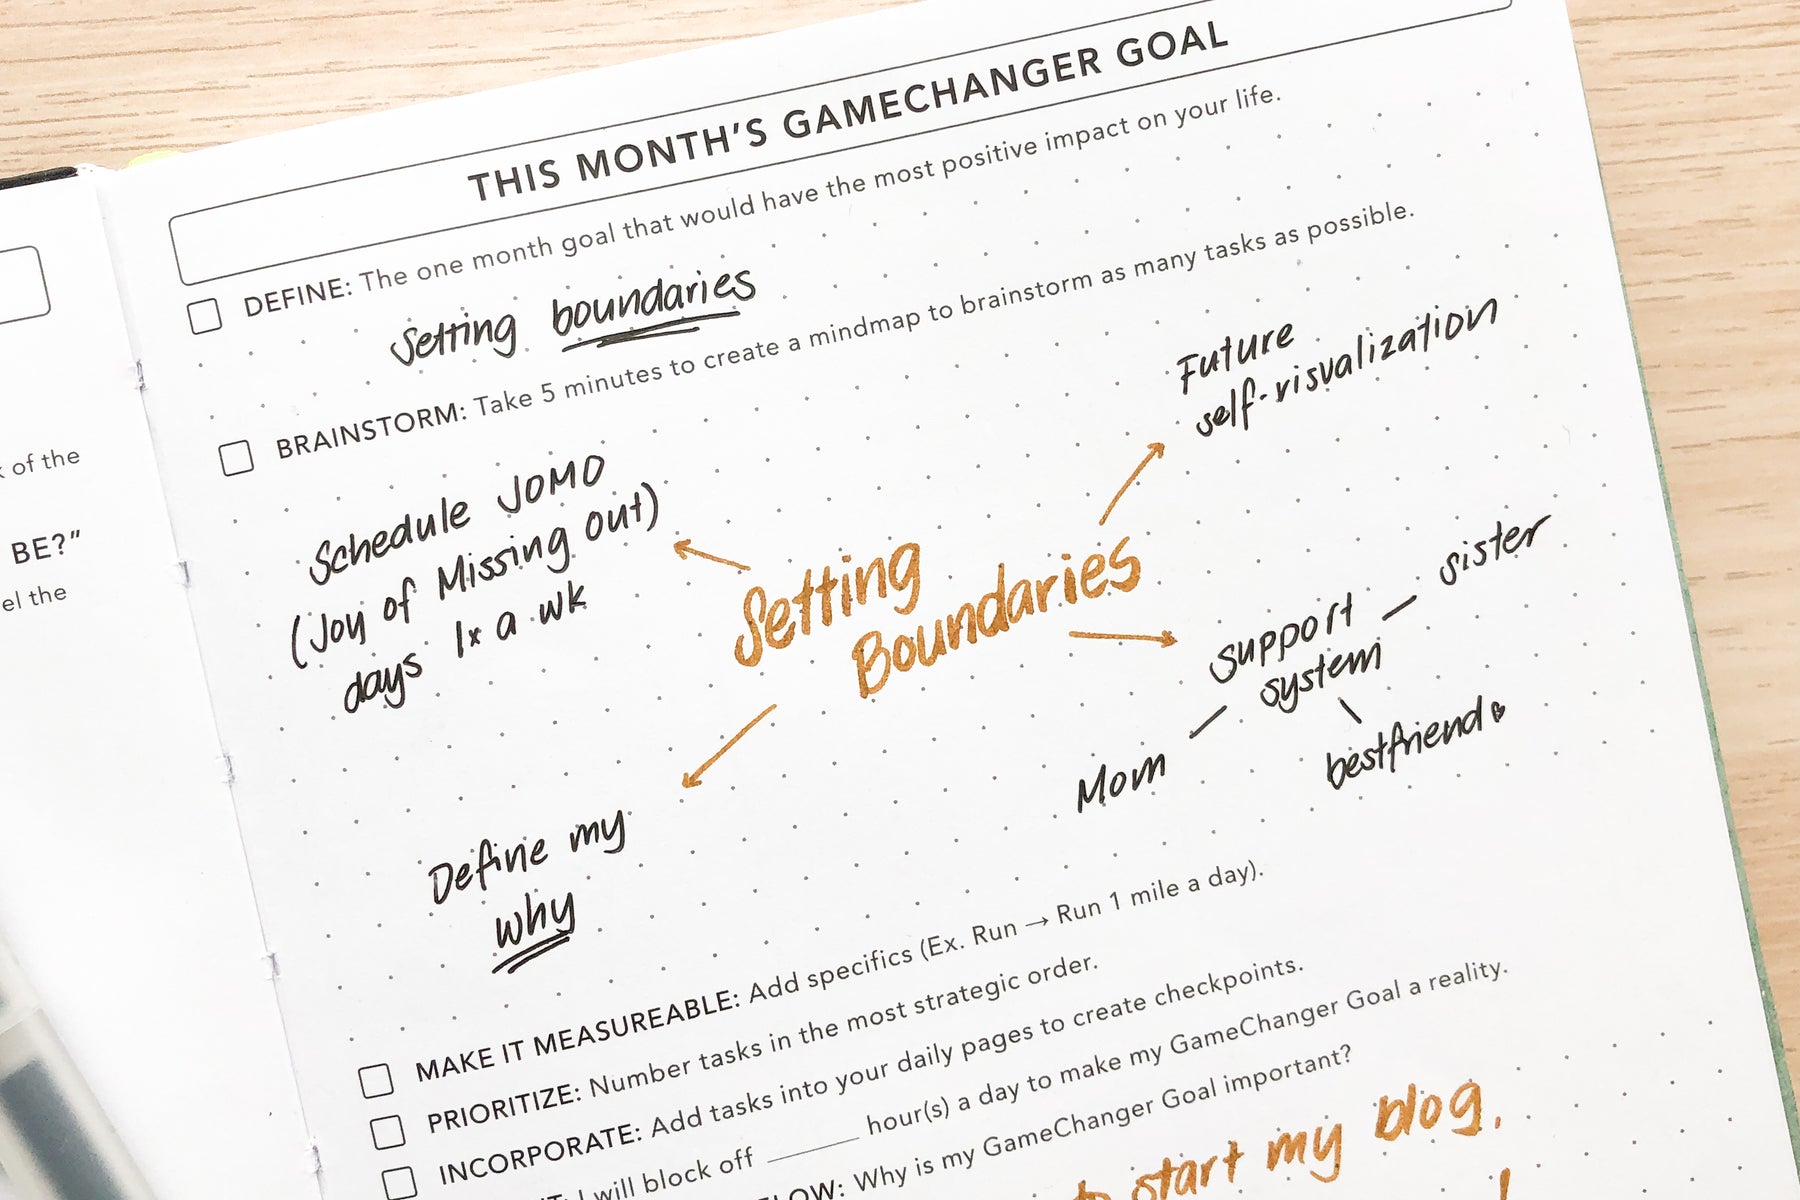 of the
BE?"
el the
THIS MONTH'S GAMECHANGER GOAL
DEFINE: The one month goal that would have the most positive impact on your life.
Setting boundaries
BRAINSTORM: Take 5 minutes to create a mindmap to brainstorm as many tasks as possible.
Schedule JOMO
(Joy of Missing out)
days 1x a wk
Future
self-visualization
Setting
Boundaries
support
system
sister
Mom
bestfriend
Define my
why
MAKE IT MEASUREABLE: Add specifics (Ex. Run → Run 1 mile a day).
PRIORITIZE: Number tasks in the most strategic order.
INCORPORATE: Add tasks into your daily pages to create checkpoints.
I will block off ______ hour(s) a day to make my GameChanger Goal a reality.
LOW: Why is my GameChanger Goal important?
start my blog.